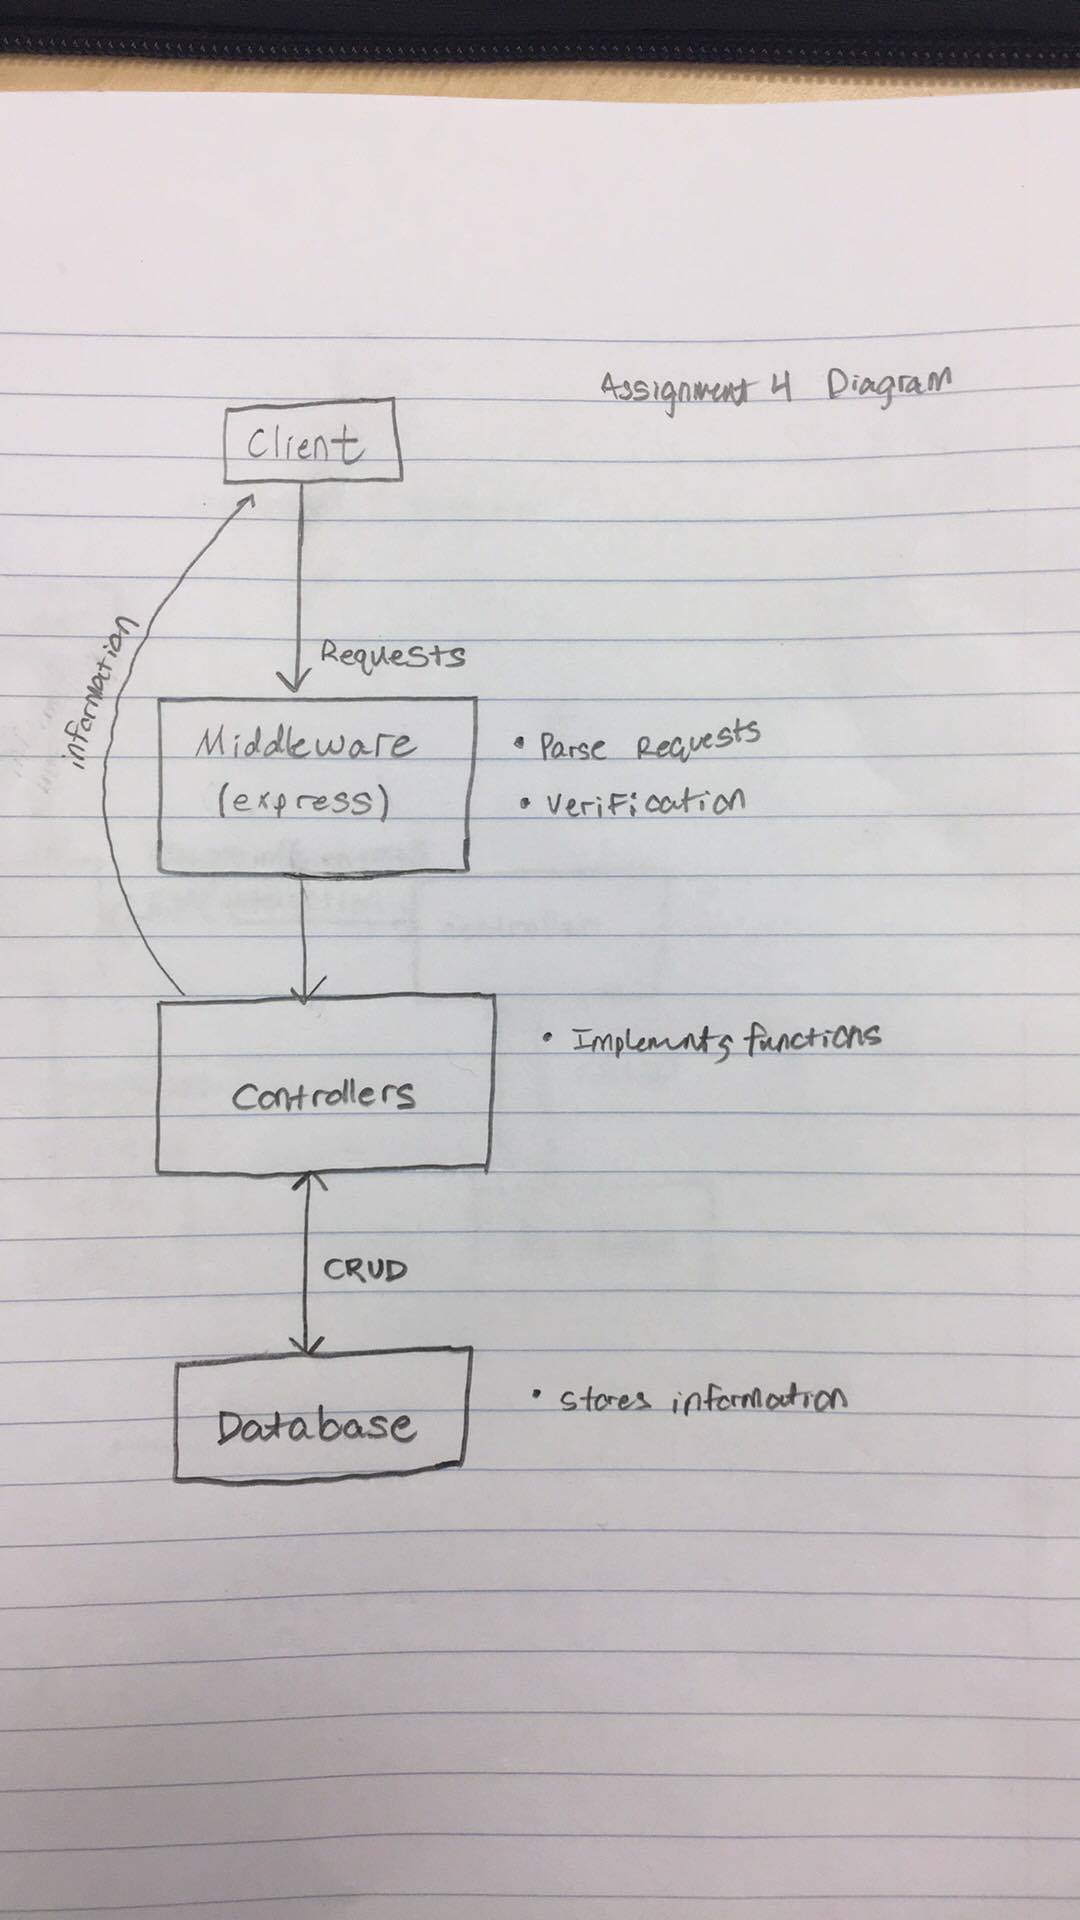 Assignment 4 Diagram
Client
information
Requests
Middleware
(express)
• Parse Requests
• Verification
Controllers
• Implements functions
CRUD
Database
• Stores information